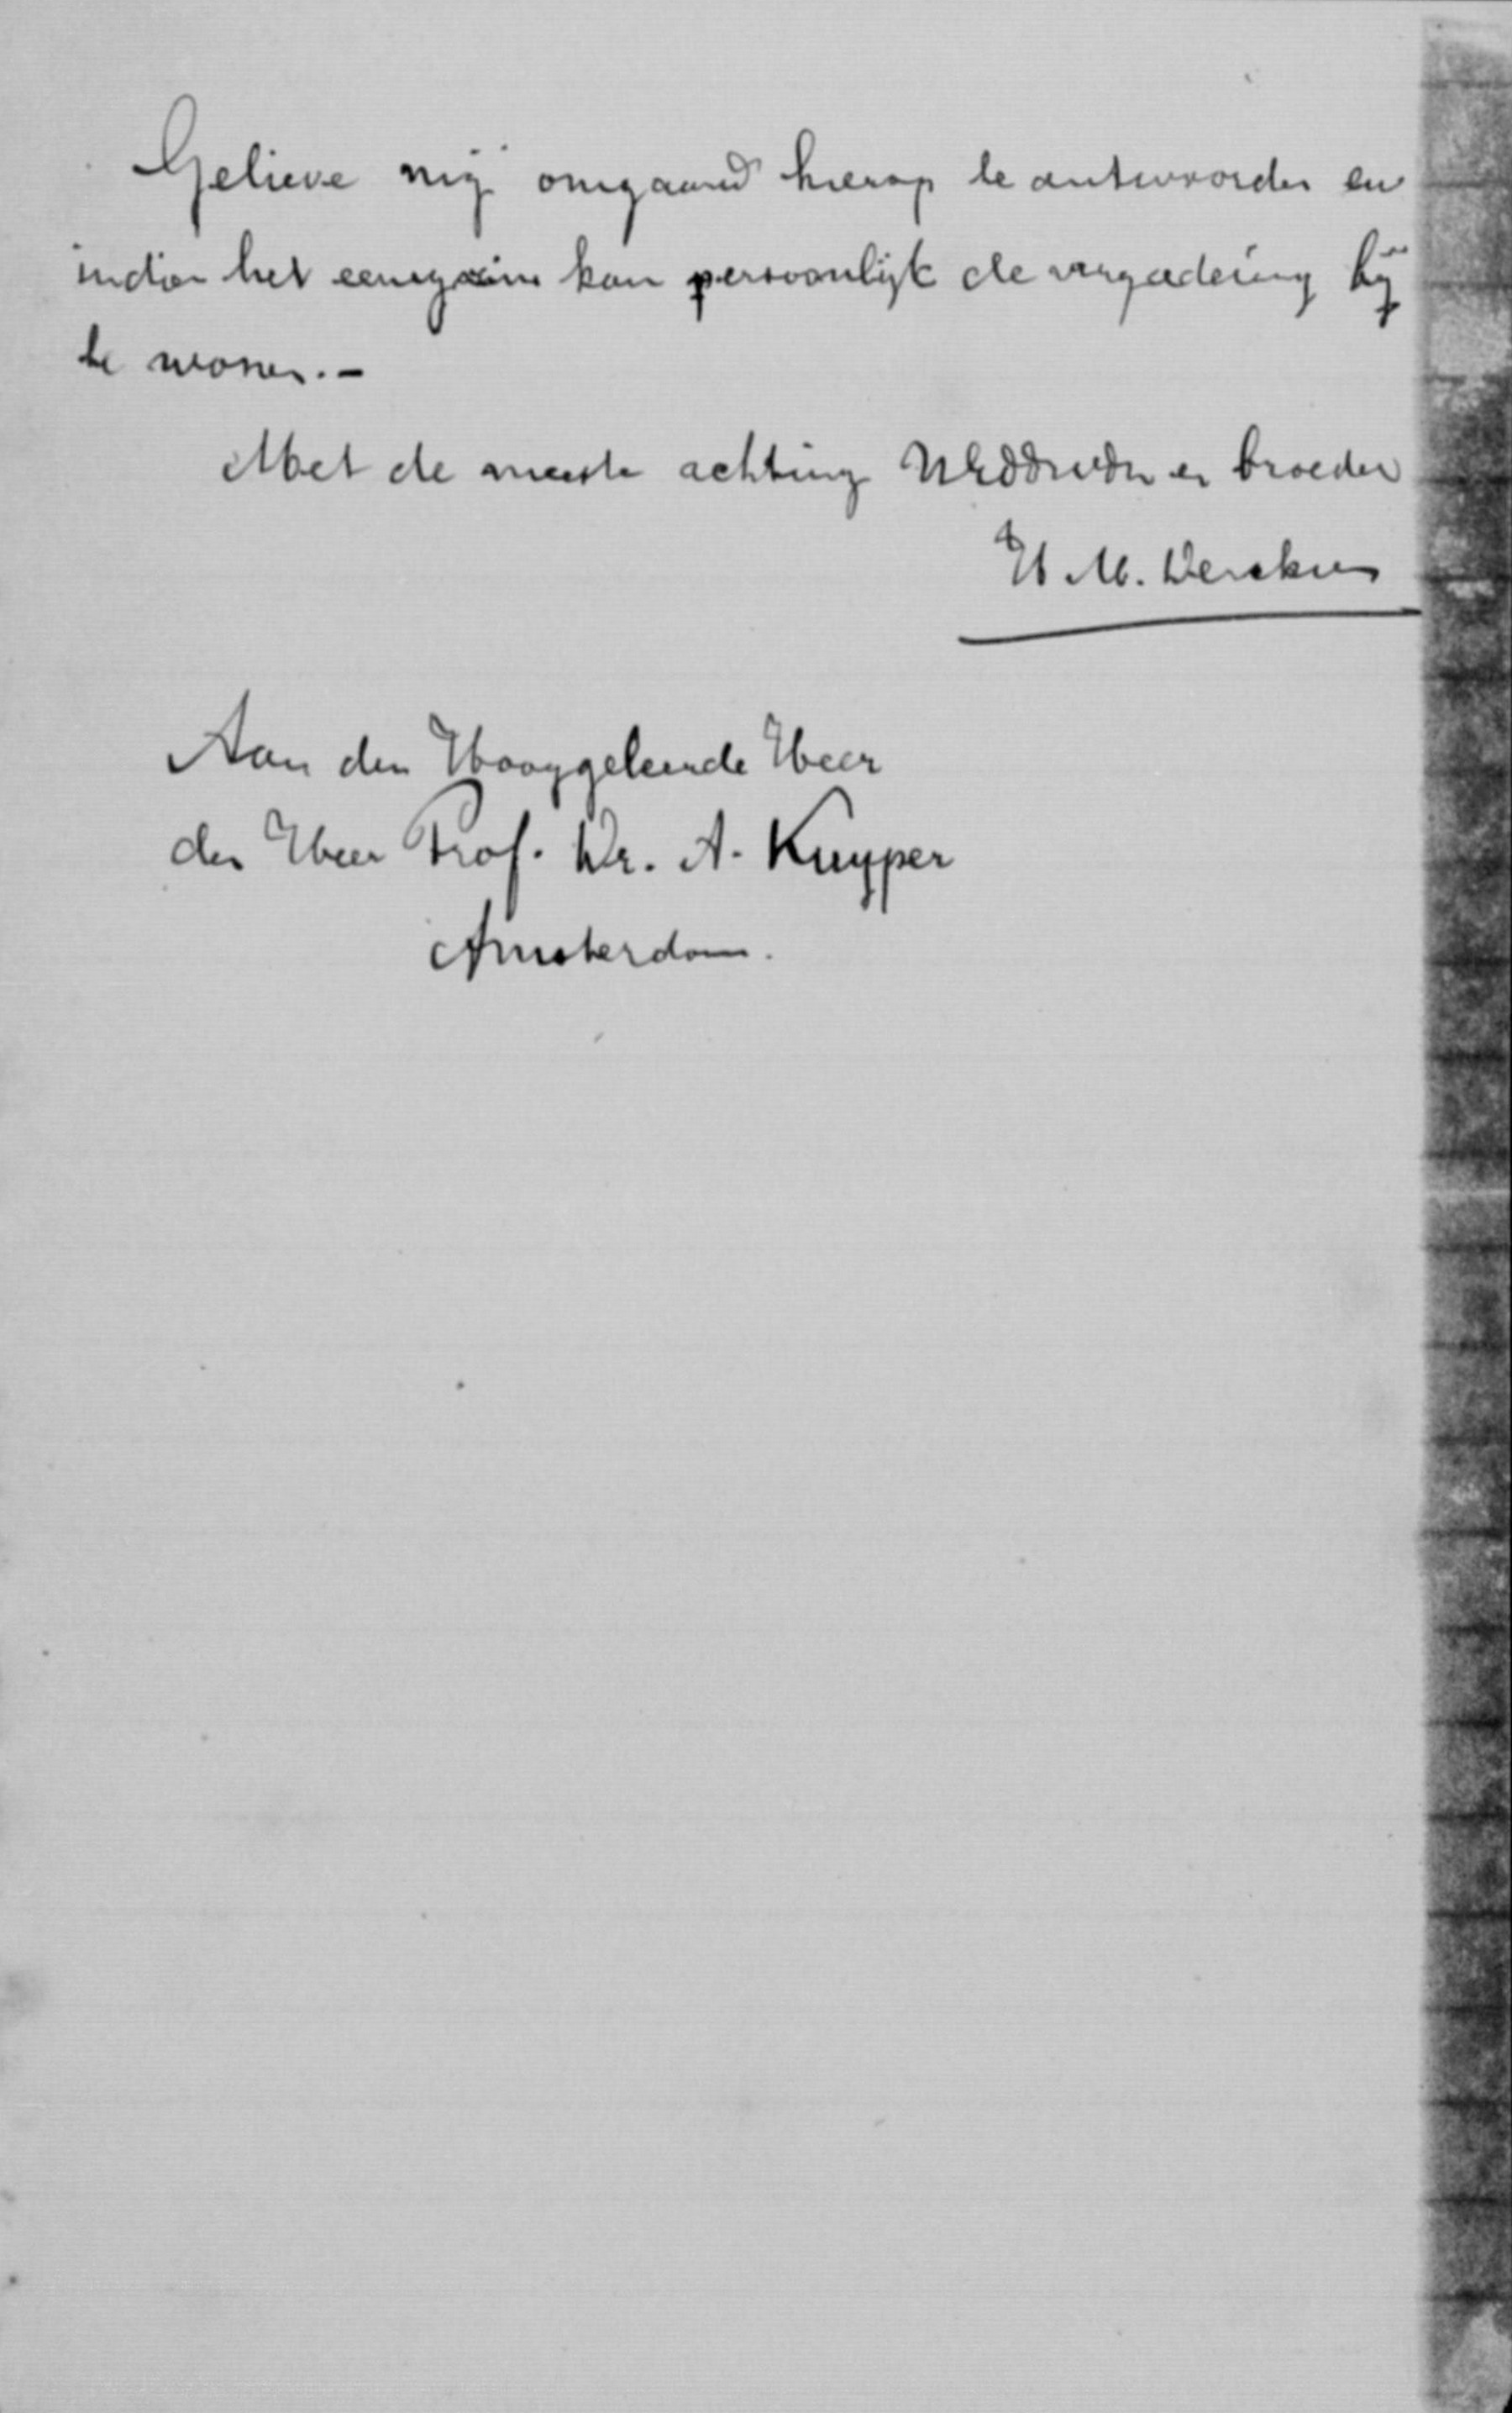 Gelieve mij omgaand hierop te antwoorden en
indien het eenigzins kan persoonlijk de vergadering bij
te wonen. -
Met de meeste achting UEddwdn en broeder
H. M. Dercksen
Aan den Hooggeleerde Heer
den Heer Prof. Dr. A. Kuyper
Amsterdam.